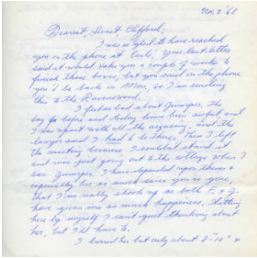 Dearest, Sweet Clifford,
I was so glad to have reached
you on the phone at Earl's. Your last letter
said it would take you a couple of weeks to
finish those boxes, but you said on the phone
you'd be back in Mon., so I'm sending
this to the Ravenswood.
I feel so bad about Juniper. The
day before and today have been awful and
I was upset with all the arguing, and the
lawyer said I had to be there. Then I left
the meeting because I couldn't stand it
and was just going out to the cottage when I
saw Juniper. I have depended upon them &
especially her so much since you've gone,
that I'm really shook up as both F. & J.
have given me so much happiness. Sitting
here by myself I can't quit thinking about
her, but I'll have to.
I buried her but only about 8"-10" &